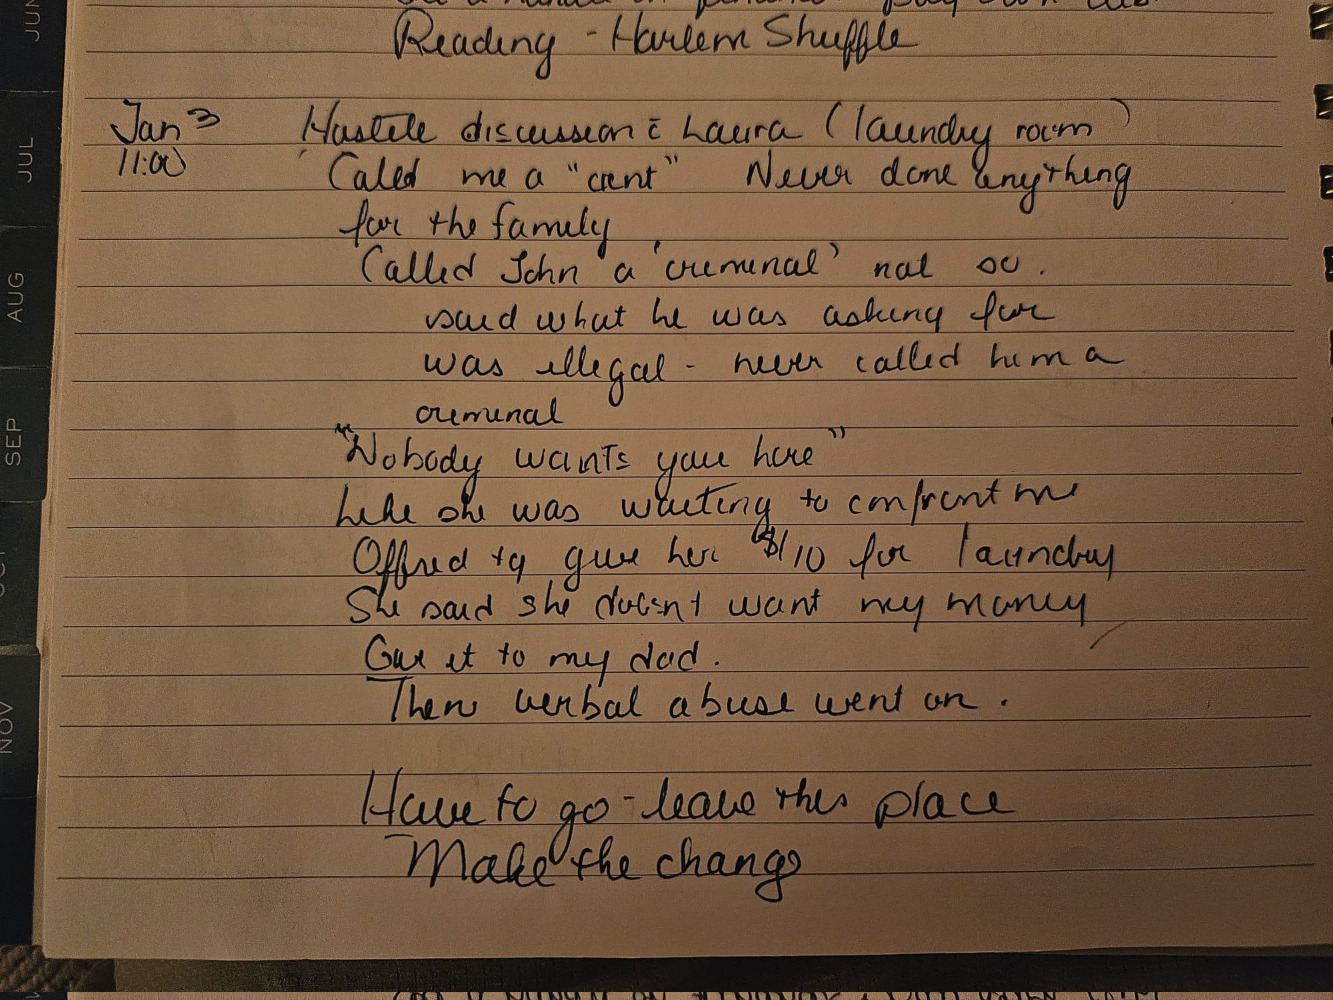 Reading - Harlem Shuffle
Jan 3
11:00
Hostile discussion c̄ Laura (laundry room)
Called me a "cunt" Never done anything
for the family
Called John a 'criminal' not so.
said what he was asking for
was illegal - never called him a
criminal
"Nobody wants you here"
Like she was waiting to confront me
Offred to give her $10 for laundry
She said she doesn't want my money
Give it to my dad.
Then verbal abuse went on.
Have to go - leave this place
Make the change
JUN
JUL
AUG
SEP
OCT
NOV